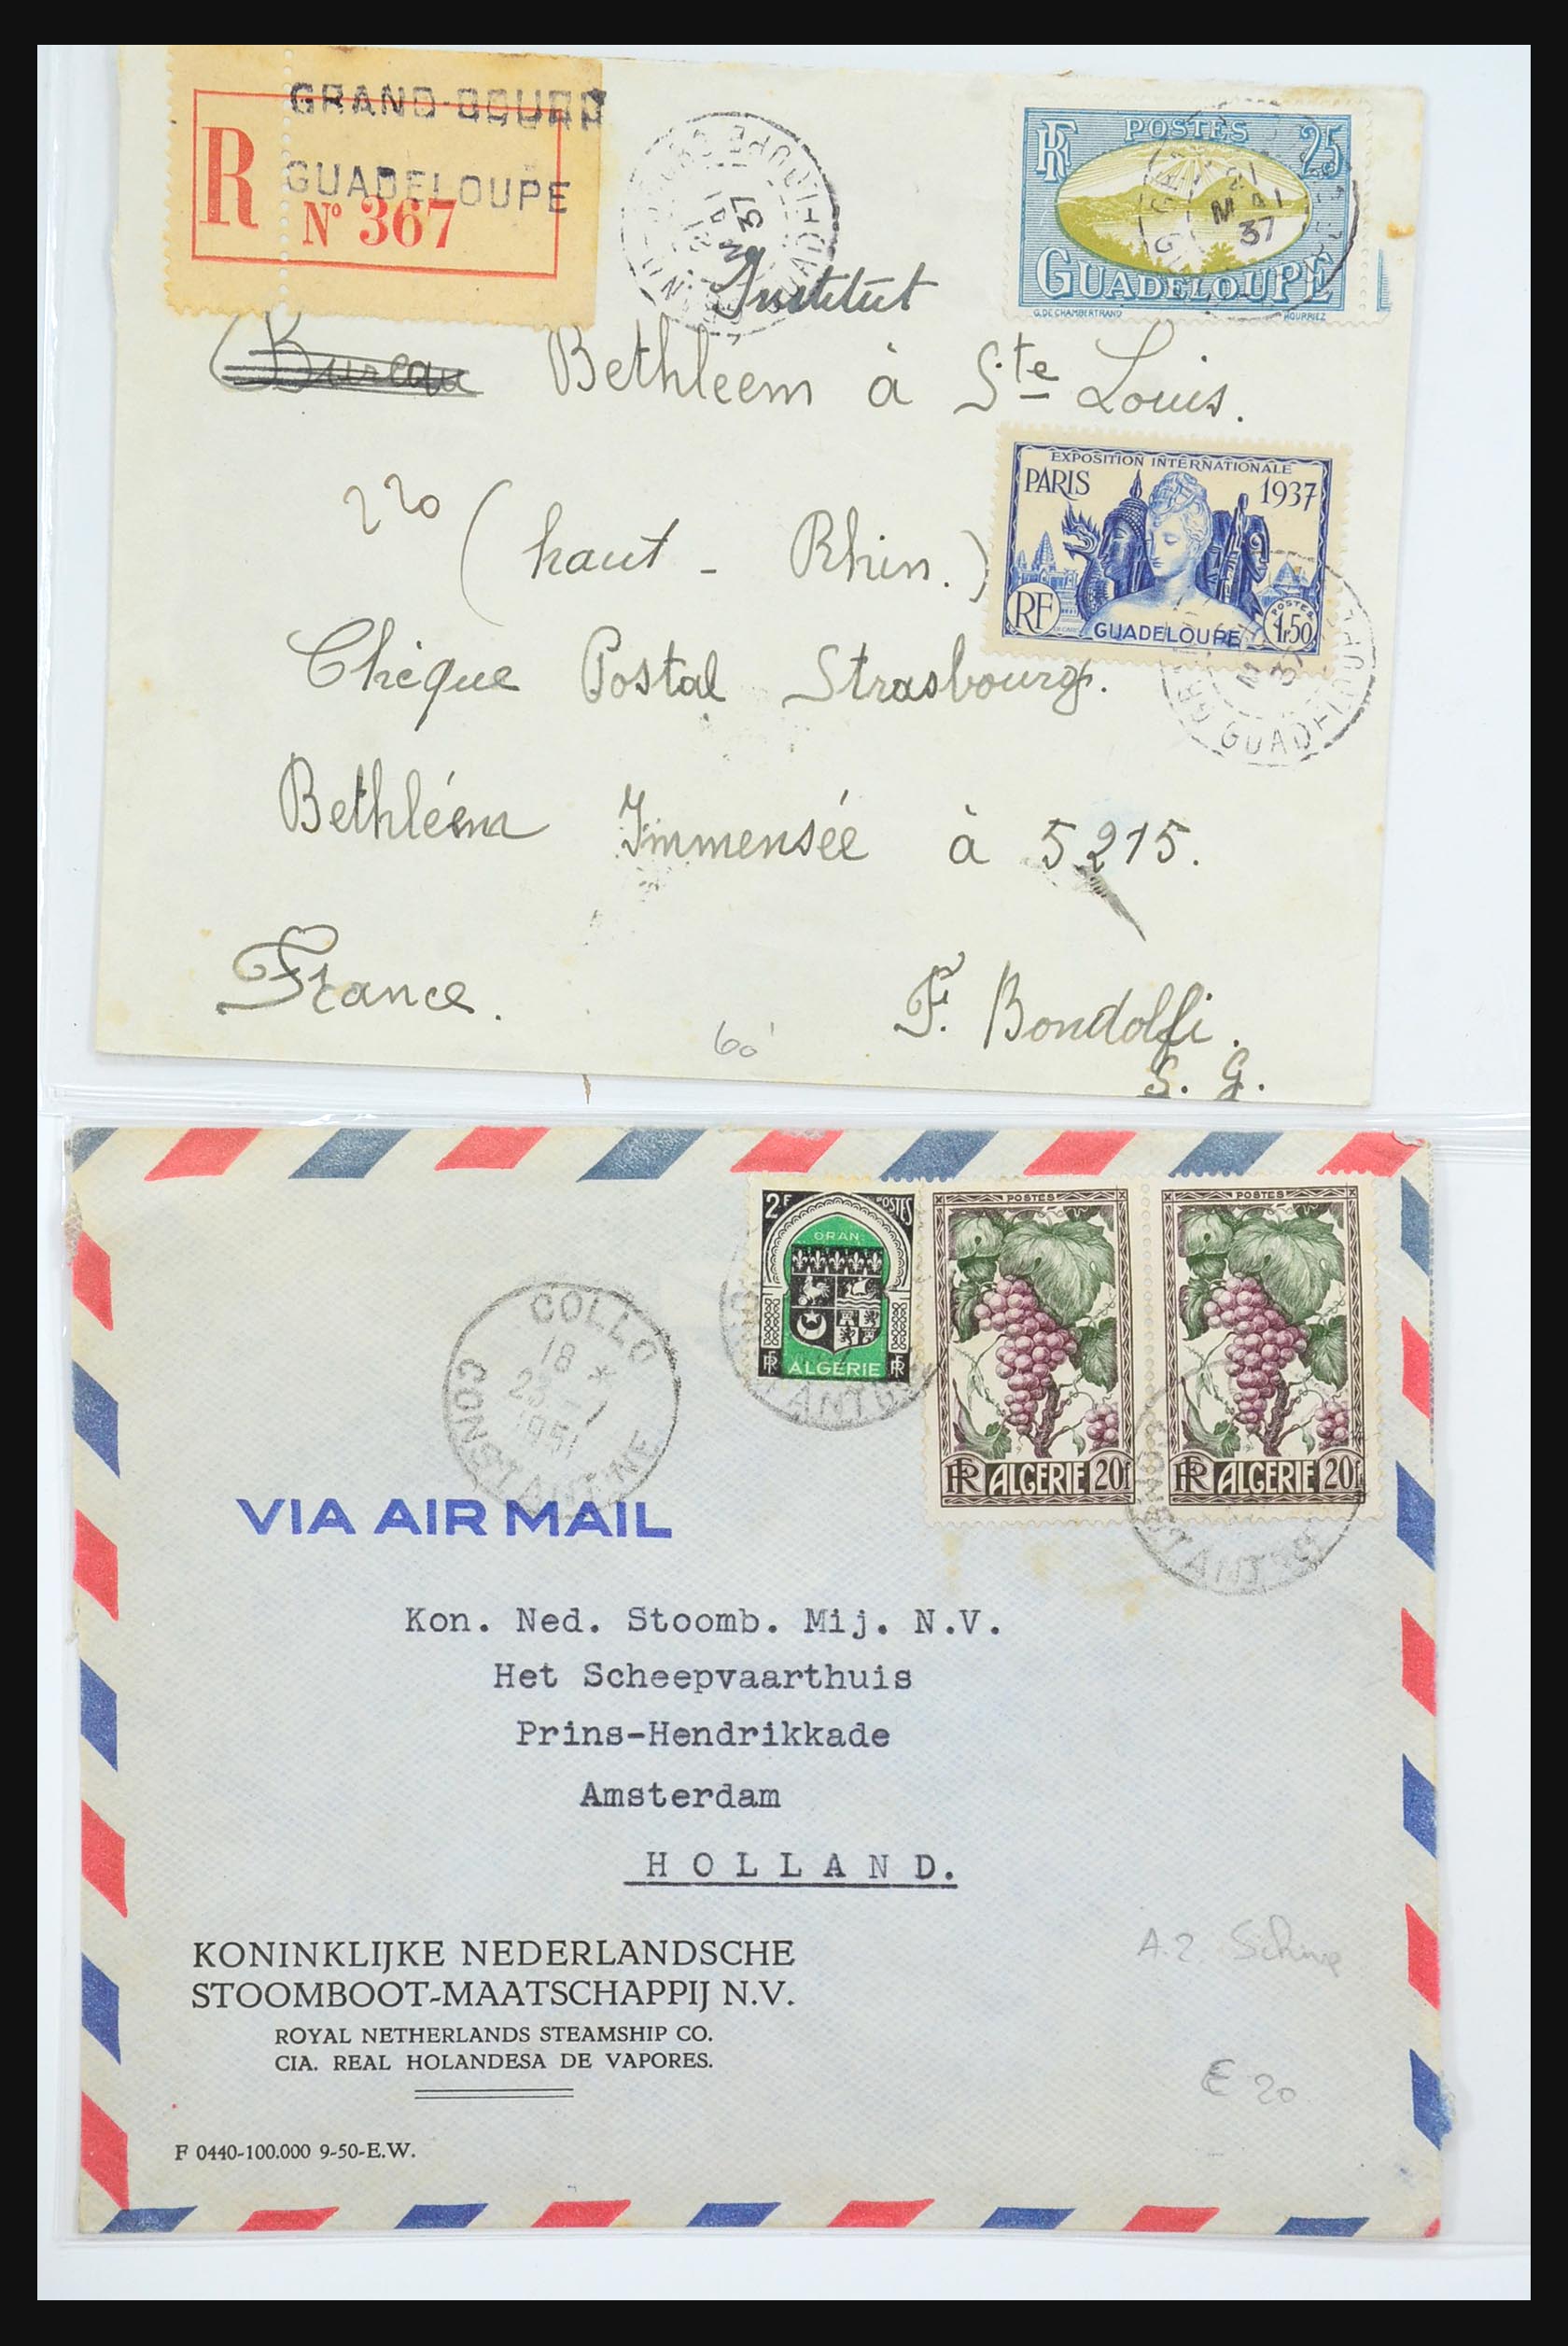 GRAND-BOURG
GUADELOUPE
R
N° 367
GUADELOUPE
21
MAI
37
RF POSTES 25
GUADELOUPE
G. DE CHAMBERTRAND HOURRIEZ
21
MAI
37
Institut
Bureau Bethléem à Ste Louis.
EXPOSITION INTERNATIONALE
PARIS 1937
POSTES
RF GUADELOUPE 1f50
GUADELOUPE
220
(haut - Rhin.)
Chèque Postal Strasbourg.
Bethléem Immensée à 5215.
France.
F. Bondolfi.
S. G.
60
2F POSTES
ORAN
RF ALGERIE RF
POSTES
RF ALGERIE 20f
POSTES
RF ALGERIE 20f
COLLO
18 *
1951
CONSTANTINE
CONSTANTINE
VIA AIR MAIL
Kon. Ned. Stoomb. Mij. N.V.
Het Scheepvaarthuis
Prins-Hendrikkade
Amsterdam
HOLLAND.
KONINKLIJKE NEDERLANDSCHE
STOOMBOOT-MAATSCHAPPIJ N.V.
ROYAL NETHERLANDS STEAMSHIP CO.
CIA. REAL HOLANDESA DE VAPORES.
€ 20
F 0440-100.000 9-50-E.W.